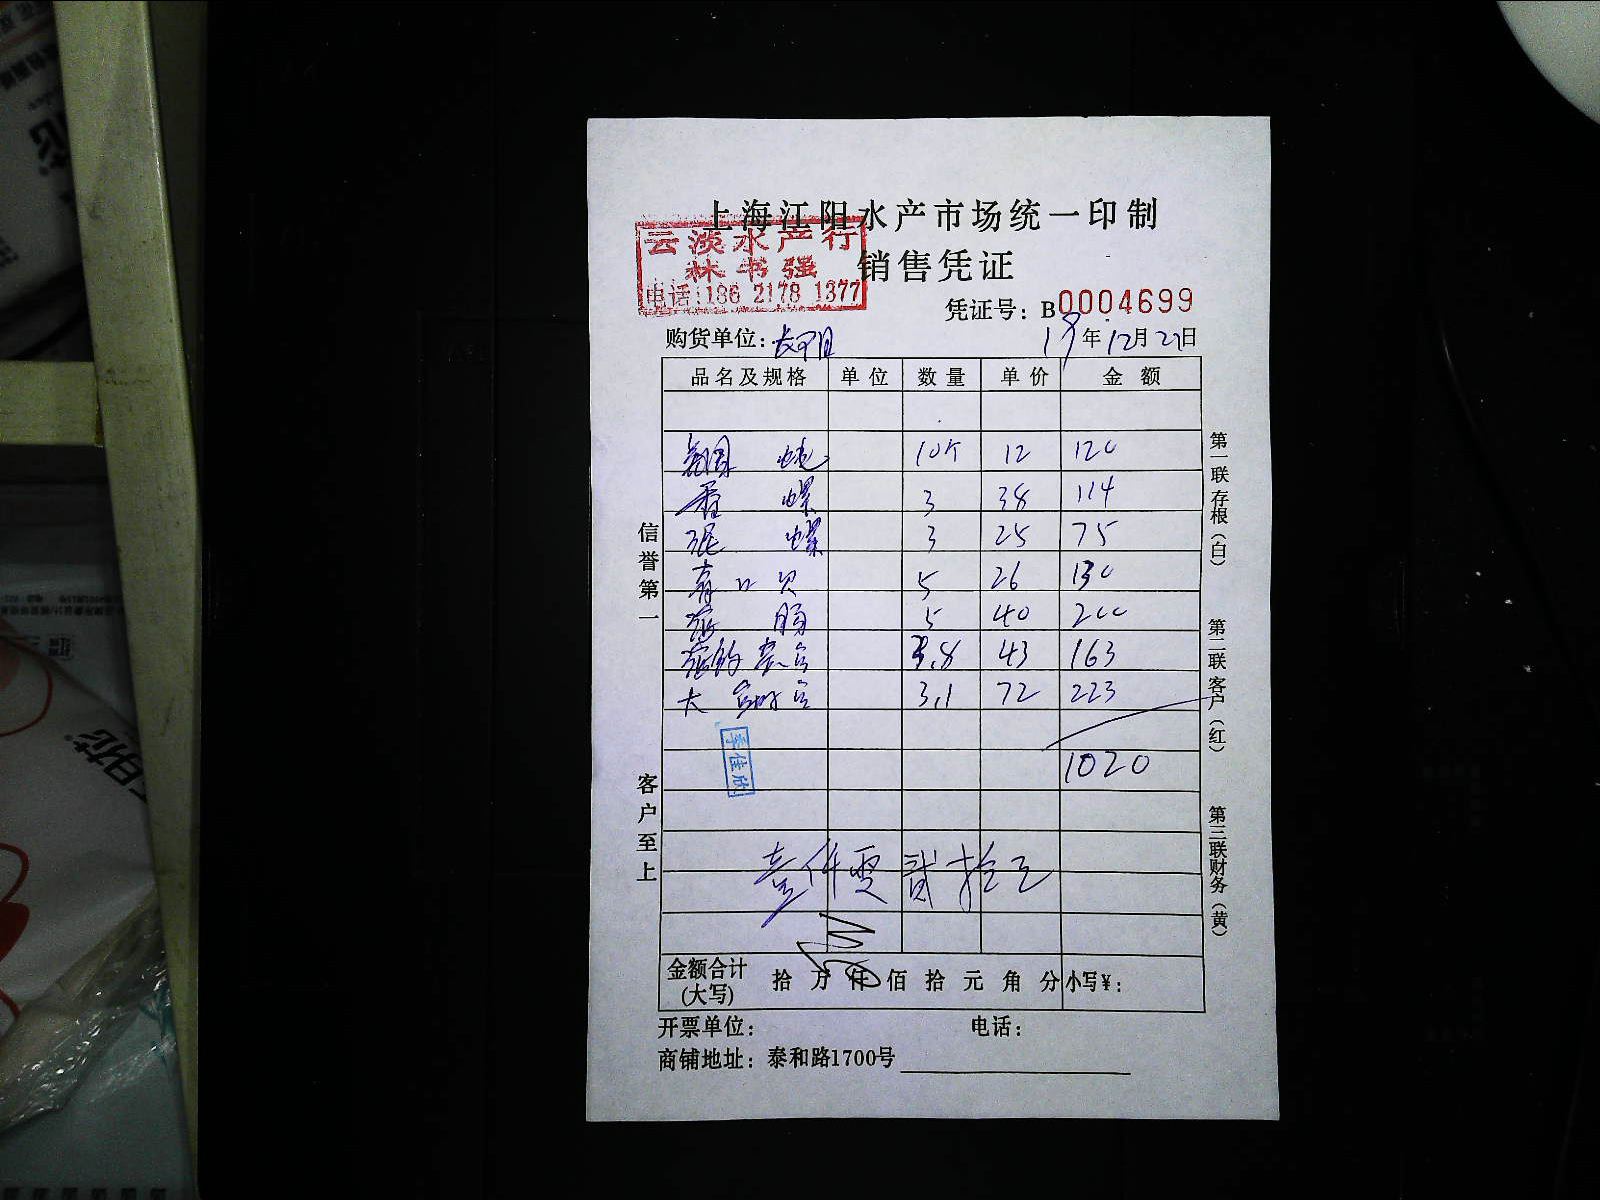 上海江阳水产市场统一印制
销售凭证
云淡水产行
林书强
电话:186 2178 1377
凭证号: B0004699
购货单位: 长阳 19年12月27日
品名及规格 单位 数量 单价 金额
10个 12 120
香螺 3 38 114
泥螺 3 25 75
青口贝 5 26 130
肠 5 40 200
3.8 43 163
大 3.1 72 223
1020
李佳欣
壹仟零贰拾元
金额合计(大写) 拾 万 仟 佰 拾 元 角 分 小写¥:
开票单位: 电话:
商铺地址: 泰和路1700号
信誉第一
客户至上
第一联存根(白)
第二联客户(红)
第三联财务(黄)